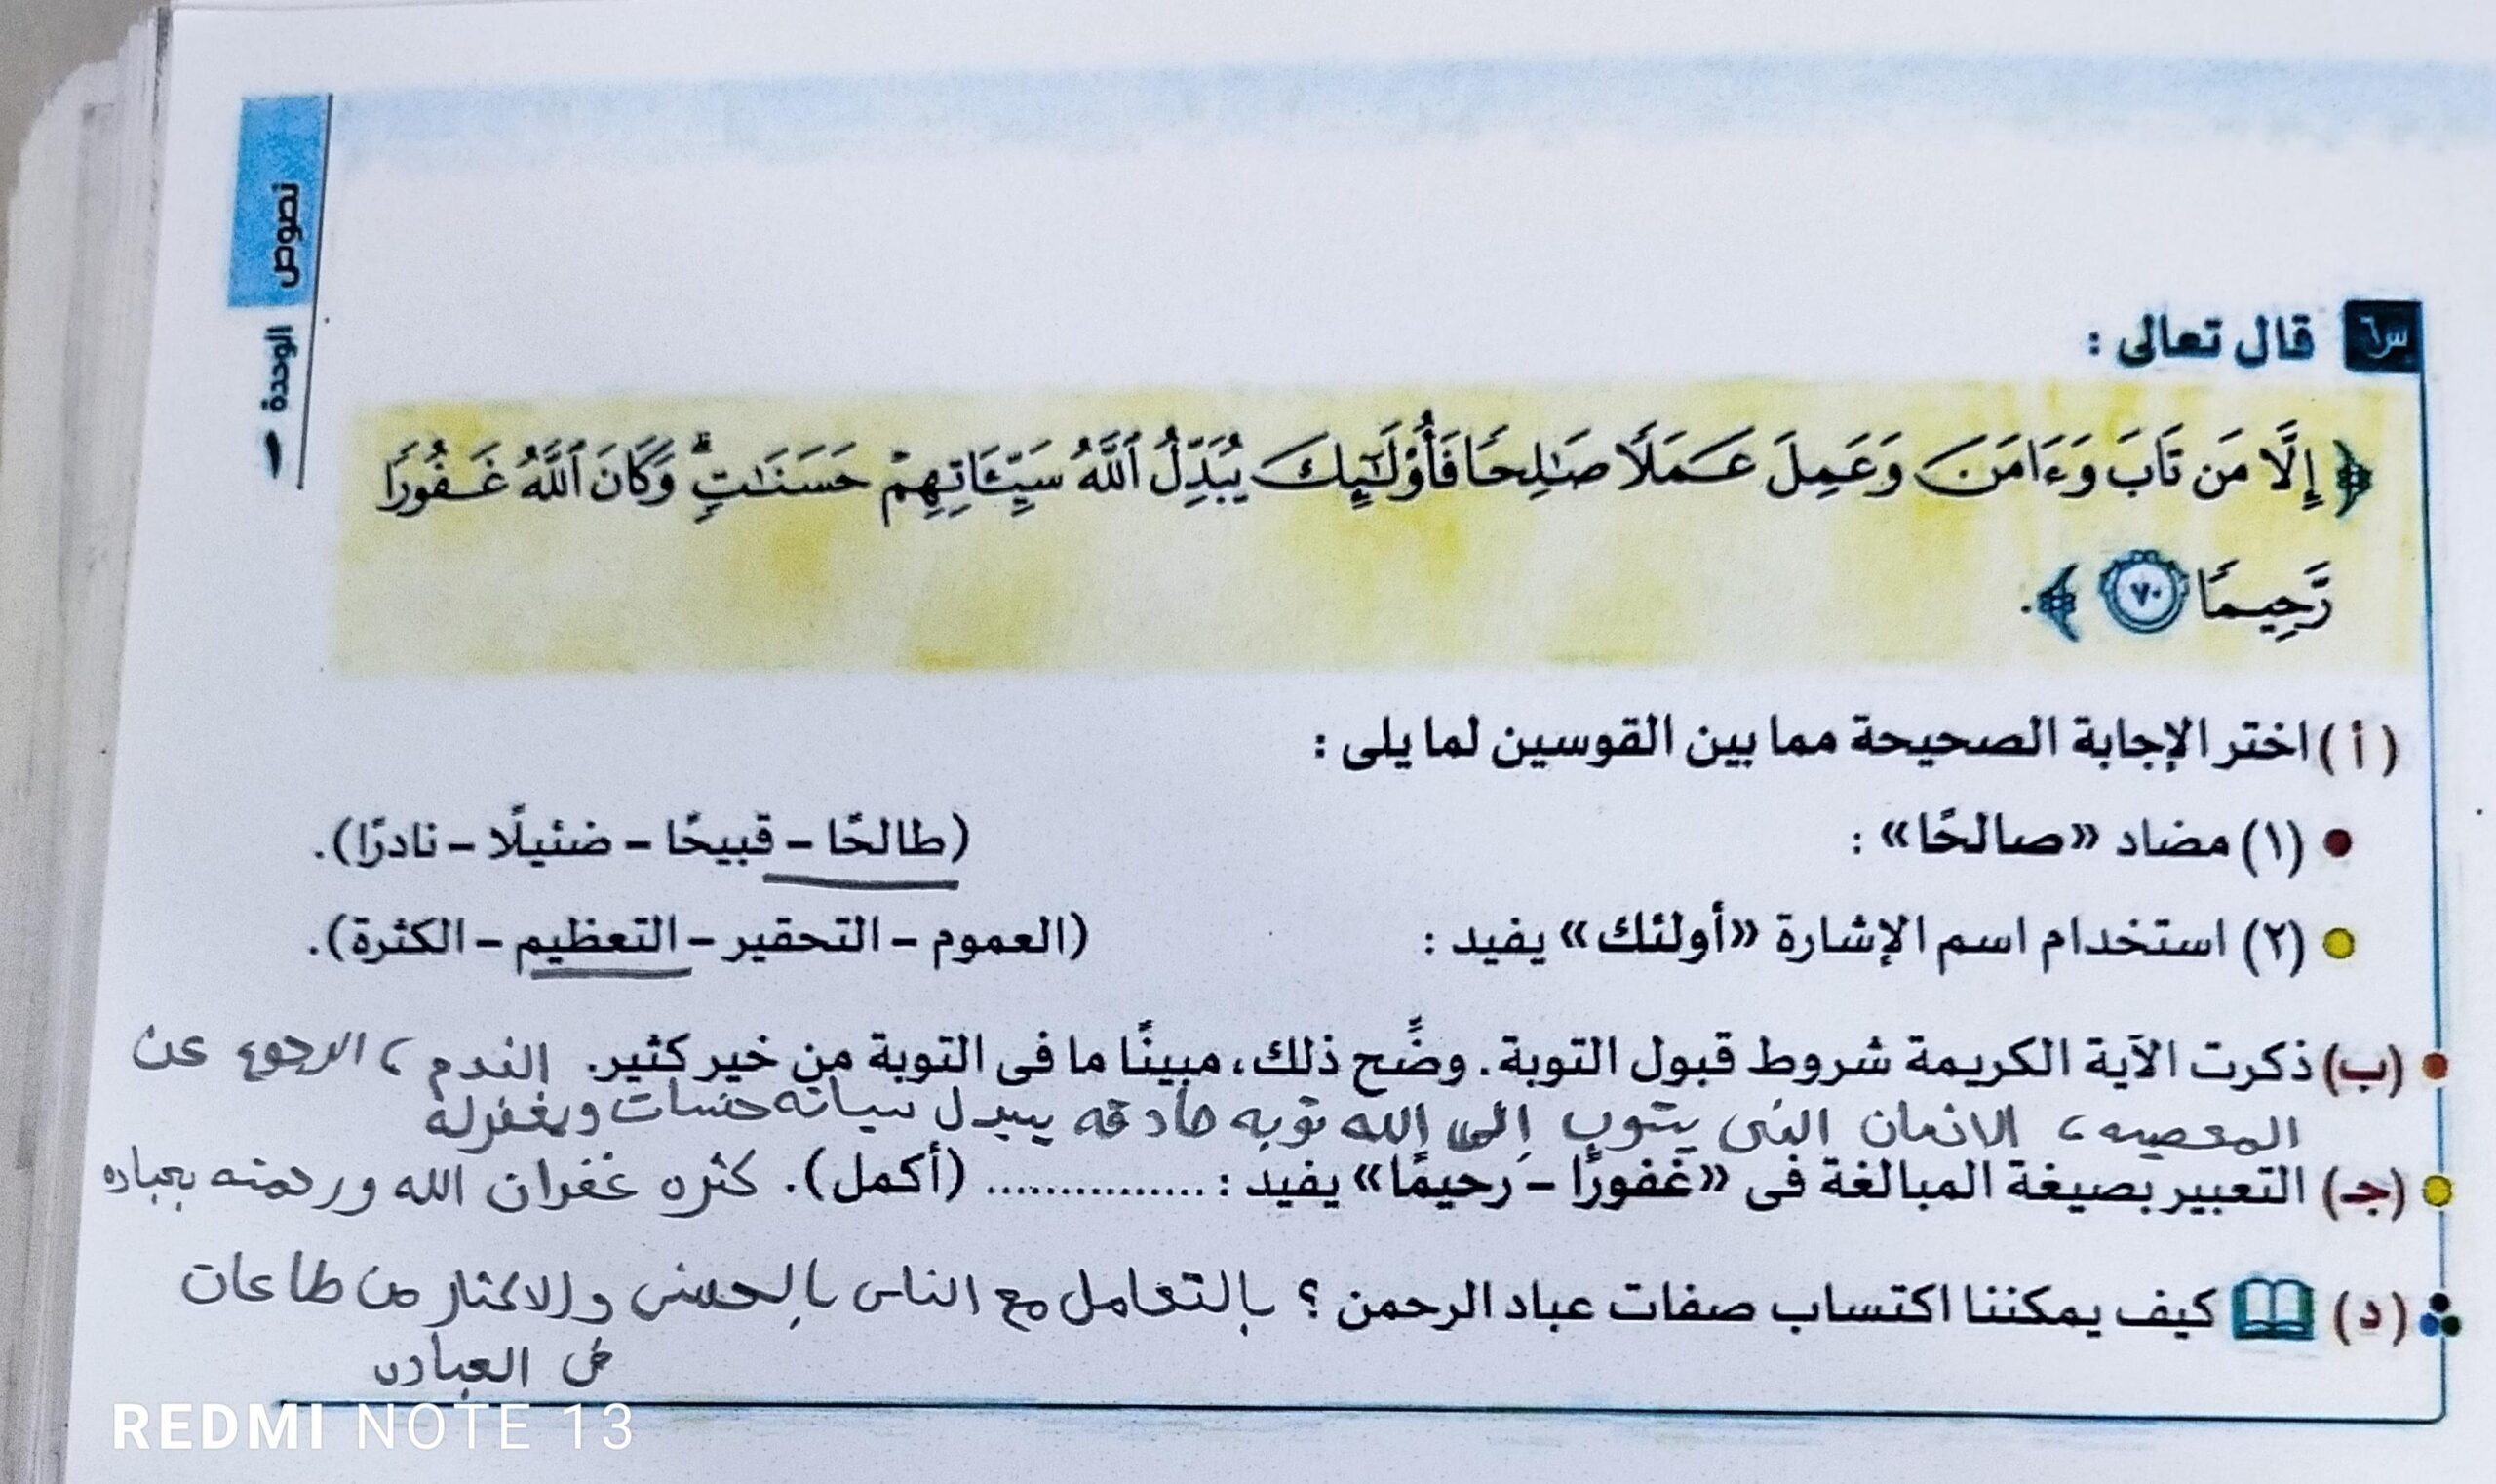 نصوص
الوحدة
س٦ قال تعالى :
﴿ إِلَّا مَن تَابَ وَءَامَنَ وَعَمِلَ عَمَلًا صَٰلِحًا فَأُوْلَٰٓئِكَ يُبَدِّلُ ٱللَّهُ سَيِّـَٔاتِهِمْ حَسَنَٰتٍ ۗ وَكَانَ ٱللَّهُ غَفُورًا
رَّحِيمًا ٧٠ ﴾.
( أ ) اختر الإجابة الصحيحة مما بين القوسين لما يلى :
(١) مضاد «صالحًا» : (طالحًا – قبيحًا – ضئيلًا – نادرًا).
(٢) استخدام اسم الإشارة «أولئك» يفيد : (العموم – التحقير – التعظيم – الكثرة).
(ب) ذكرت الآية الكريمة شروط قبول التوبة. وضِّح ذلك، مبينًا ما فى التوبة من خير كثير. الندم ، الرجوع عن
المعصيه ، الانسان التى يتوب إلى الله توبه صادقه يبدل سياته حسنات ويغفرله
(جـ) التعبير بصيغة المبالغة فى «غفورًا – رحيمًا» يفيد : ............... (أكمل). كثره غفران الله ورحمته بعباده
(د) كيف يمكننا اكتساب صفات عباد الرحمن ؟ بالتعامل مع الناس بالحسنى والاكثار من طاعات
العباده
REDMI NOTE 13